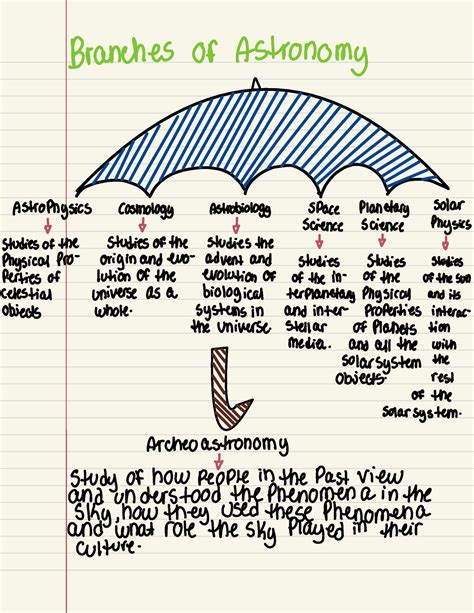 Branches of Astronomy
AstroPhysics
Studies of the
Physical Pro-
Perties of
celestial
objects
Cosmology
Studies of the
origin and evo-
lution of the
universe as a
whole.
Astrobiology
Studies the
advent and
evolution of
biological
systems in
the universe
SPace
Science
Studies
of the in-
terPlanetary
and inter-
stellar
media.
Planetary
Science
Studies
of the
Physical
ProPerties
of Planets
and all the
solar system
objects.
Solar
Physics
Studies
of the son
and its
interac-
tion
with
the
rest
of the
solar system.
Archeoastronomy
Study of how PeoPle in the Past view
and understood the Phenomena in the
sky, how they used these Phenomena
and what role the sky Played in their
culture.